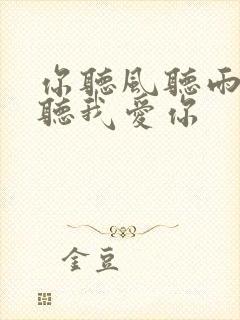 你聽風聽雨
聽我愛你
金豆